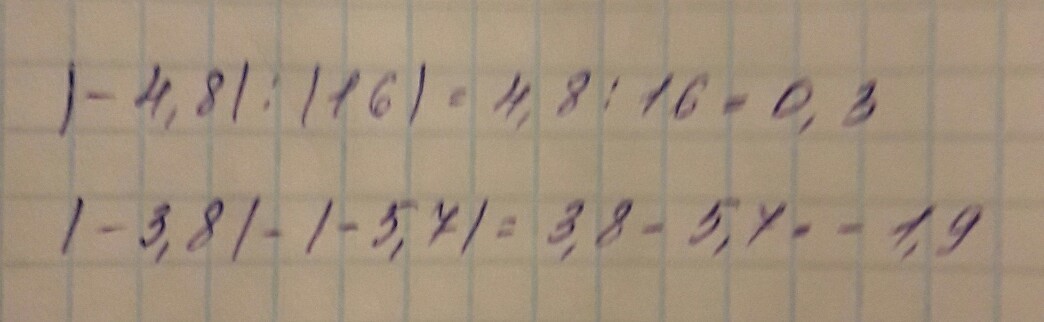 |-4,8|:|16|=4,8:16=0,3
|-3,8|-|-5,7|=3,8-5,7=-1,9